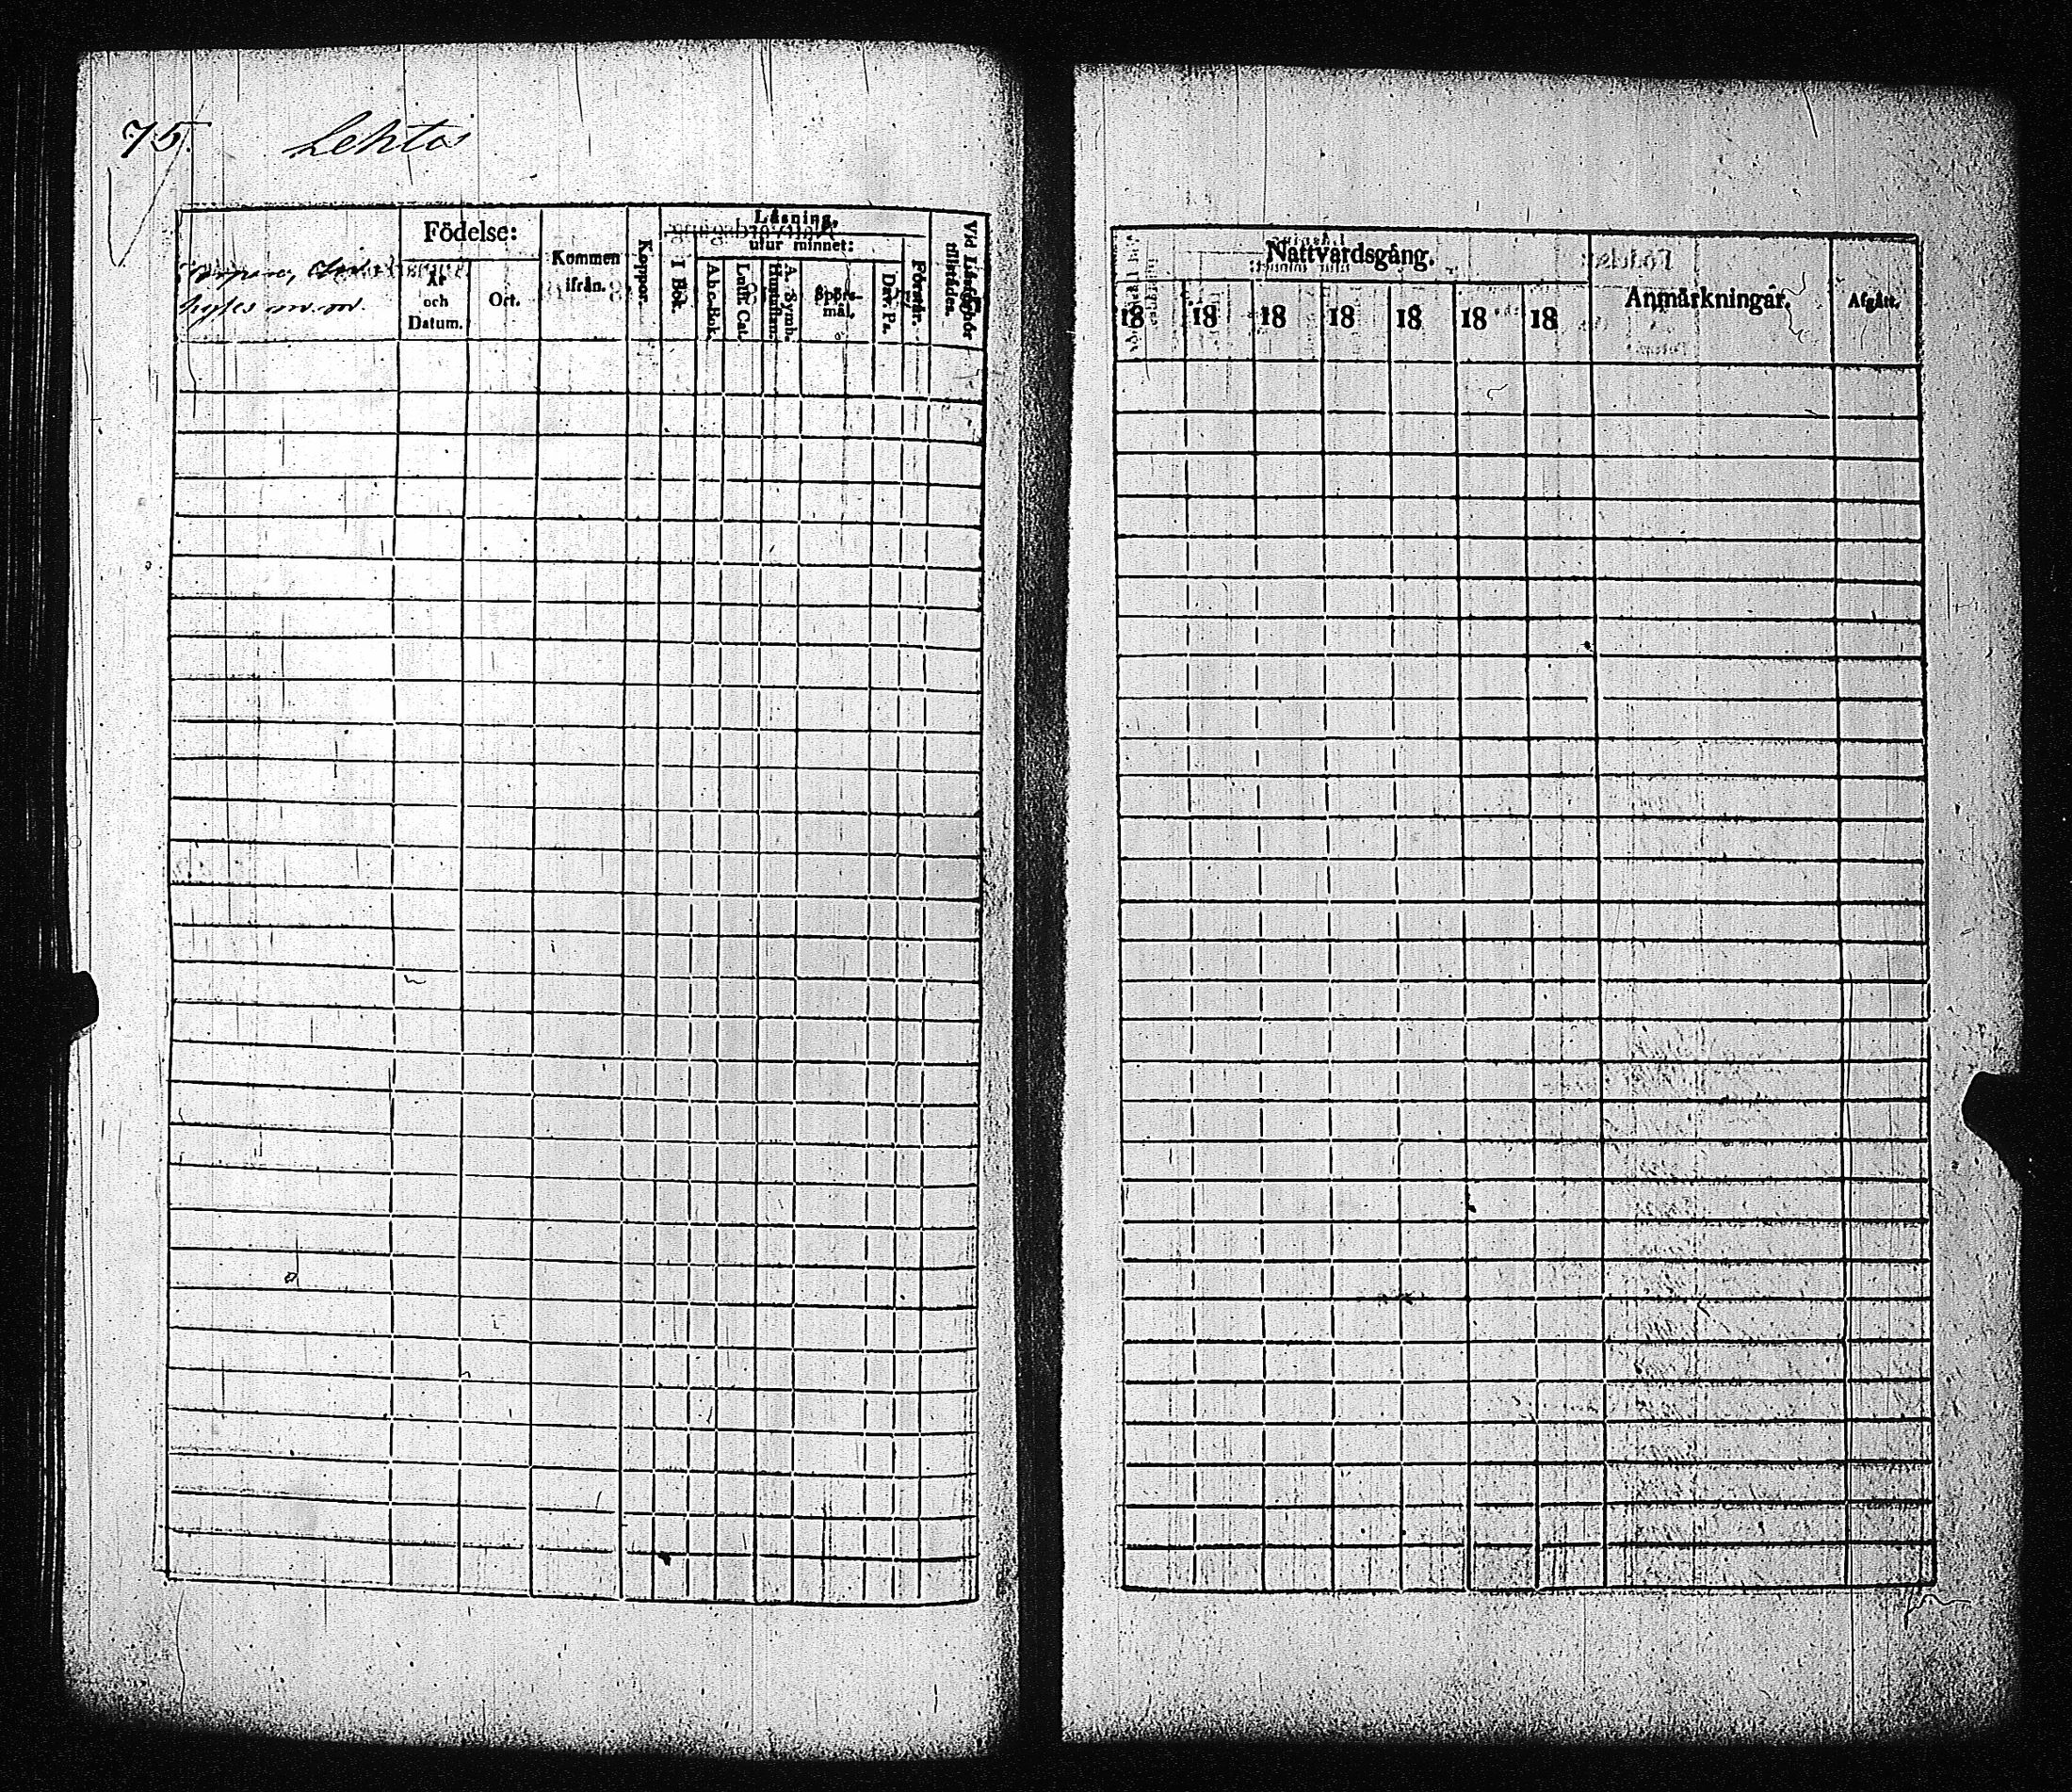 75.
Lehto
Födelse:
År
och
Datum.
Ort.
Kommen
ifrån.
Koppor.
Läsning,
I Bok.
utur minnet:
Abc-Bok.
Luth. Cat.
A. Symb.
Hustaflan.
Spörs-
mål.
Dav. Ps.
Förstår.
Vid Läseförhör
tillstädes.
Nattvardsgång.
18 18 18 18 18 18 18
Anmärkningar.
Afgått.